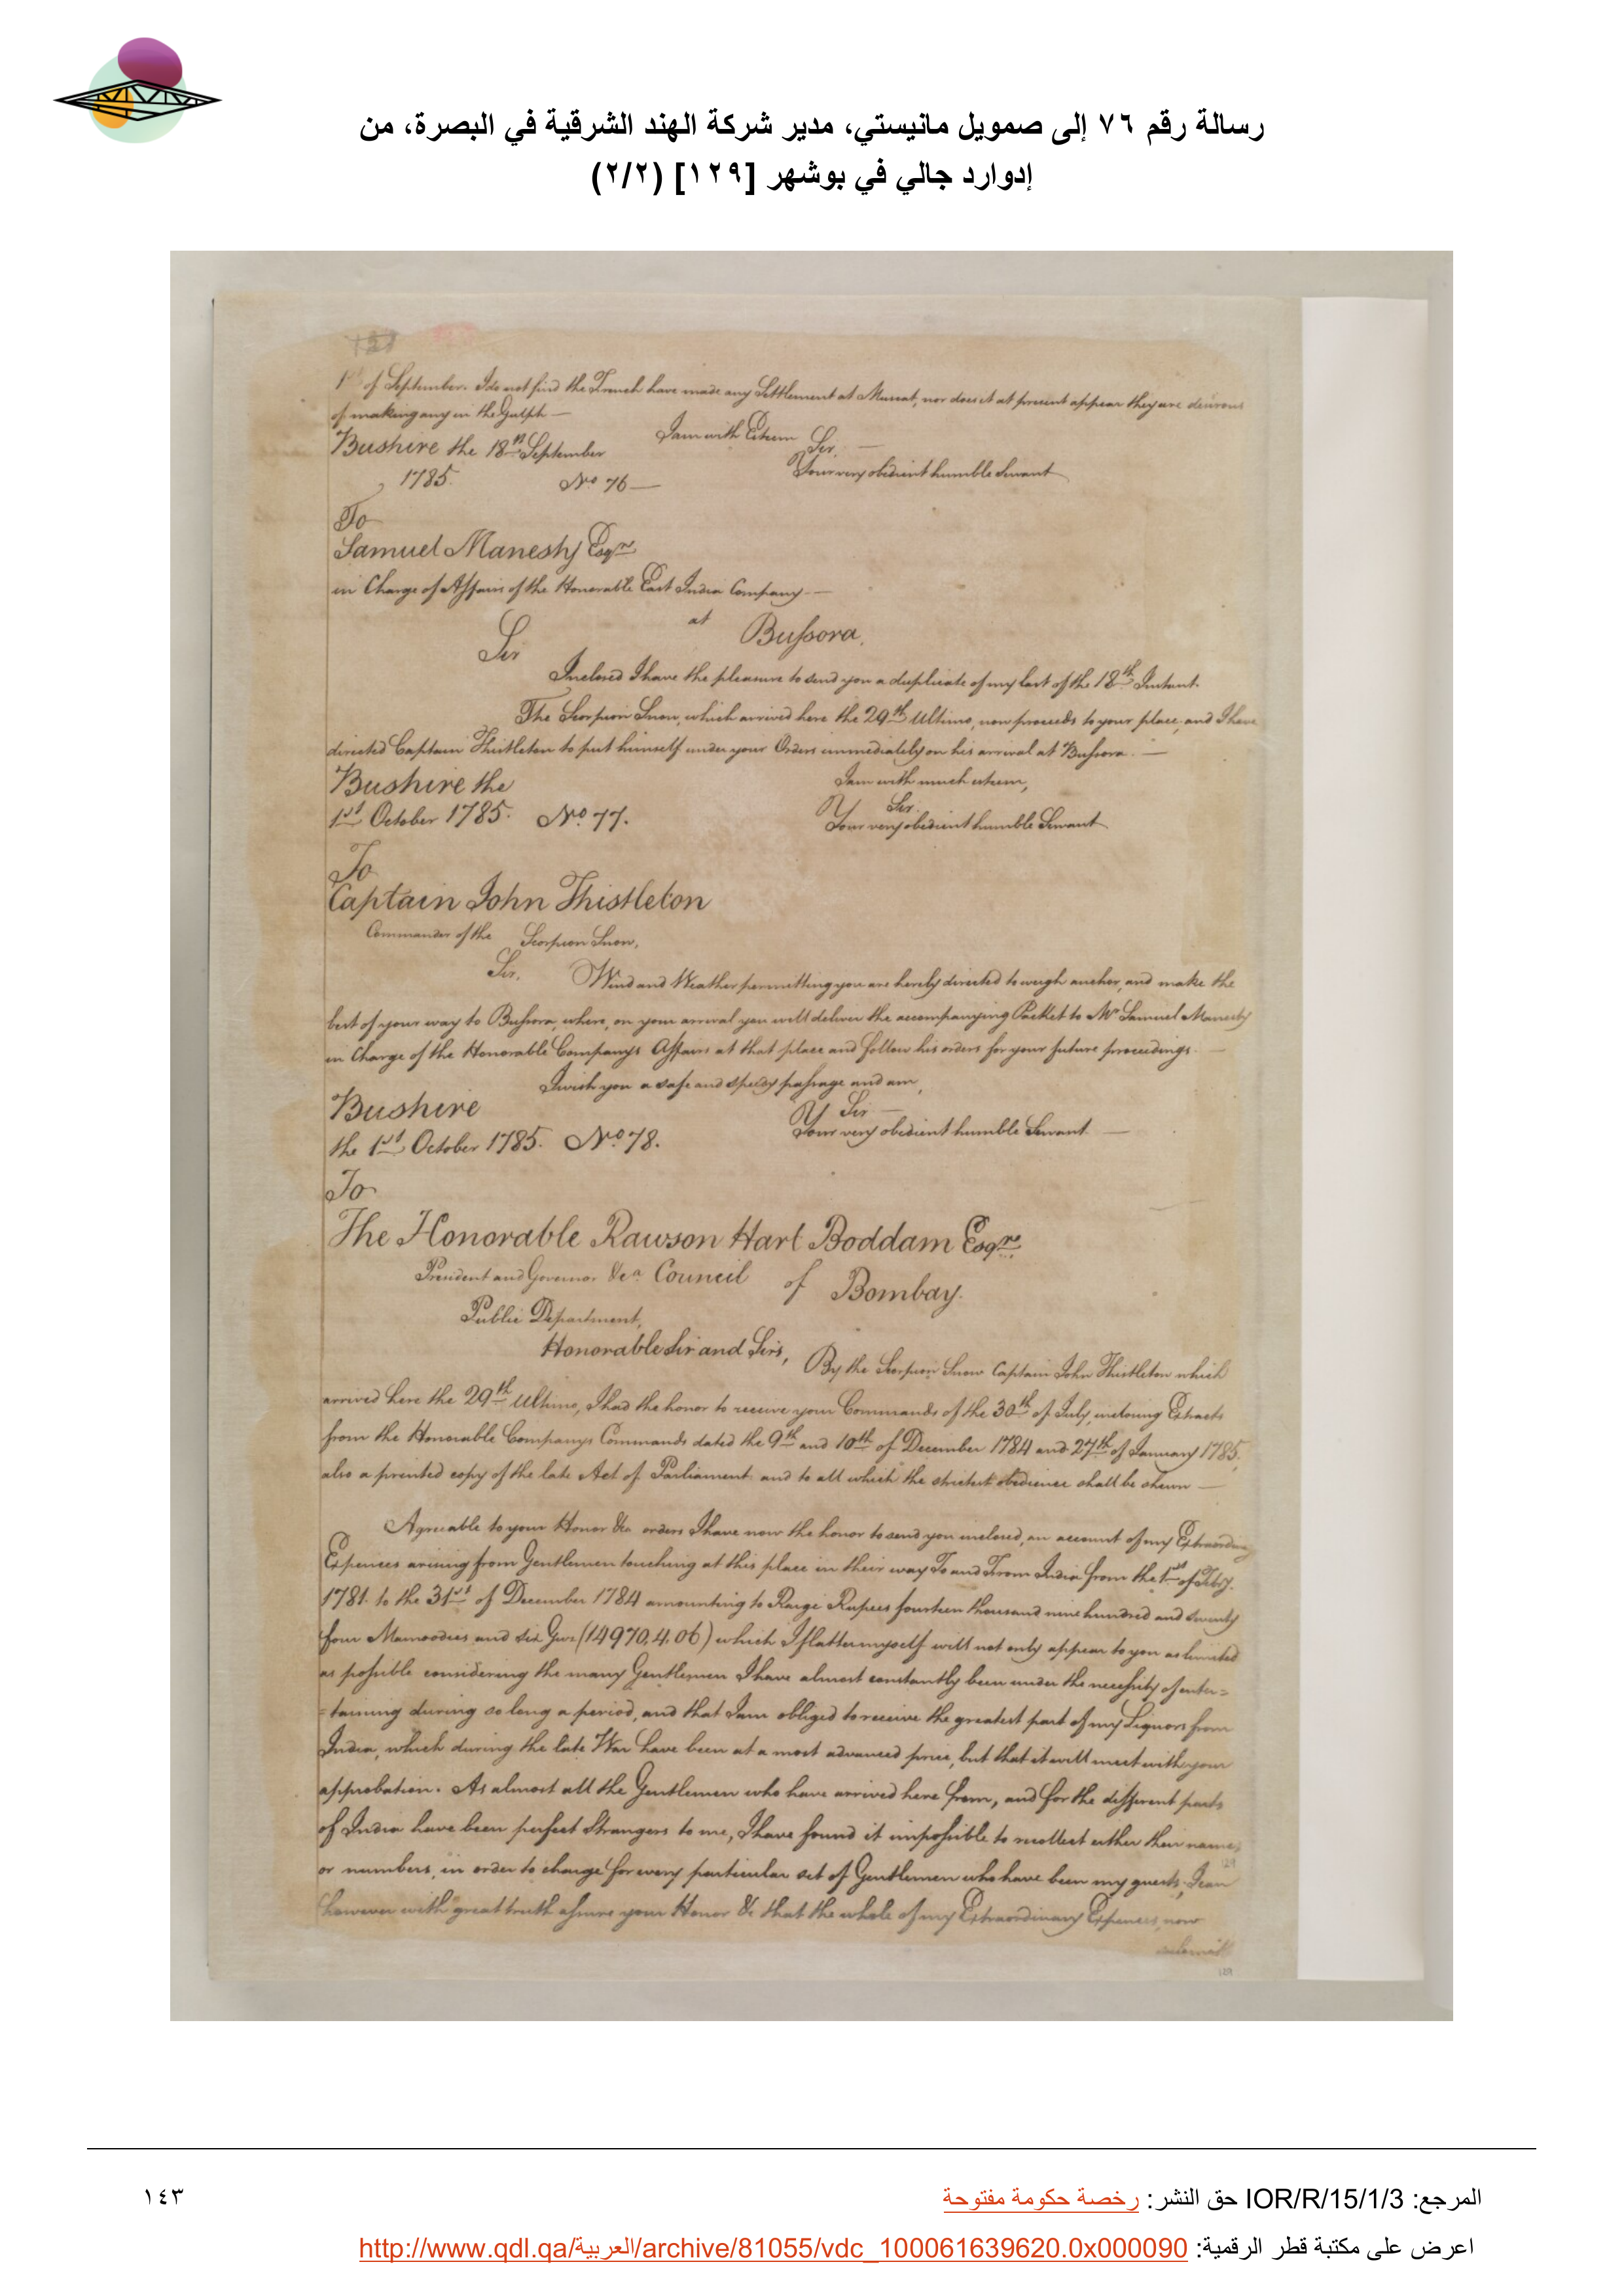 رسالة رقم ٧٦ إلى صمويل مانيستي، مدير شركة الهند الشرقية في البصرة، من
إدوارد جالي في بوشهر [١٢٩] (٢/٢)
1st of September. I do not find the French have made any Settlement at Muscat, nor does it at present appear they are desirous
of making any in the Gulph —
I am with Esteem
Sir. —
Bushire the 18th September
Your very obedient humble Servant
1785. No 76 —
To
Samuel Manesty Esqre
in Charge of Affairs of the Honorable East India Company —
at Bussora.
Sir
Inclosed I have the pleasure to send you a duplicate of my last of the 18th Instant.
The Scorpion Snow, which arrived here the 29th Ultimo, now proceeds to your place, and I have
directed Captain Thistleton to put himself under your Orders immediately on his arrival at Bussora. —
Bushire the
I am with much esteem,
Sir.
1st October 1785. No 77.
Your very obedient humble Servant
To
Captain John Thistleton
Commander of the Scorpion Snow,
Sir, Wind and Weather permitting you are hereby directed to weigh anchor, and make the
best of your way to Bussora, where, on your arrival you will deliver the accompanying Packet to Mr Samuel Manesty
in Charge of the Honorable Companys Affairs at that place and follow his orders for your future proceedings. —
I wish you a safe and speedy passage and am,
Bushire
Sir —
Your very obedient humble Servant. —
the 1st October 1785. No 78.
To
The Honorable Rawson Hart Boddam Esqre
President and Governor &ca Council of Bombay.
Public Department,
Honorable Sir and Sirs,
By the Scorpion Snow Captain John Thistleton which
arrived here the 29th Ultimo, I had the honor to receive your Commands of the 30th of July, inclosing Extracts
from the Honorable Companys Commands dated the 9th and 10th of December 1784 and 27th of January 1785,
also a printed copy of the late Act of Parliament and to all which the strictest obedience shall be shewn —
Agreable to your Honor &ca orders I have now the honor to send you inclosed, an account of my Extraordinary
Expences arising from Gentlemen touching at this place in their way To and From India from the 1st of Febry.
1781. to the 31st of December 1784 amounting to Raige Rupees fourteen thousand nine hundred and seventy
four Mamoodies and six Guz (14970,4,06) which I flatter myself will not only appear to you as limited
as possible considering the many Gentlemen I have almost constantly been under the necessity of enter=
=taining during so long a period, and that I am obliged to receive the greatest part of my Liquors from
India, which during the late War have been at a most advanced price, but that it will meet with your
approbation. As almost all the Gentlemen who have arrived here from, and for the different parts
of India have been perfect Strangers to me, I have found it impossible to recollect either their names,
or numbers, in order to charge for every particular set of Gentlemen who have been my guests, I can
however with great truth assure your Honor &c that the whole of my Extraordinary Expences, now
submit
129
المرجع: IOR/R/15/1/3 حق النشر: رخصة حكومة مفتوحة
١٤٣
اعرض على مكتبة قطر الرقمية: http://www.qdl.qa/العربية/archive/81055/vdc_100061639620.0x000090